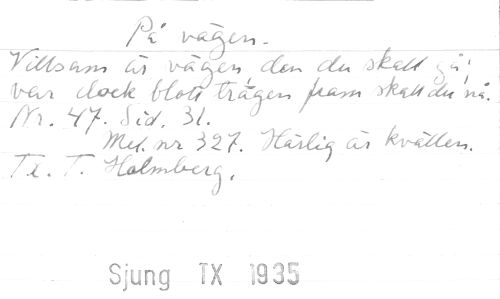 På vägen.
Villsam är vägen den du skall gå,
var dock blott trägen fram skall du nå.
Nr. 47. Sid. 31.
Mel. nr 327. Härlig är kvällen.
Te. T. Holmberg.
Sjung TX 1935